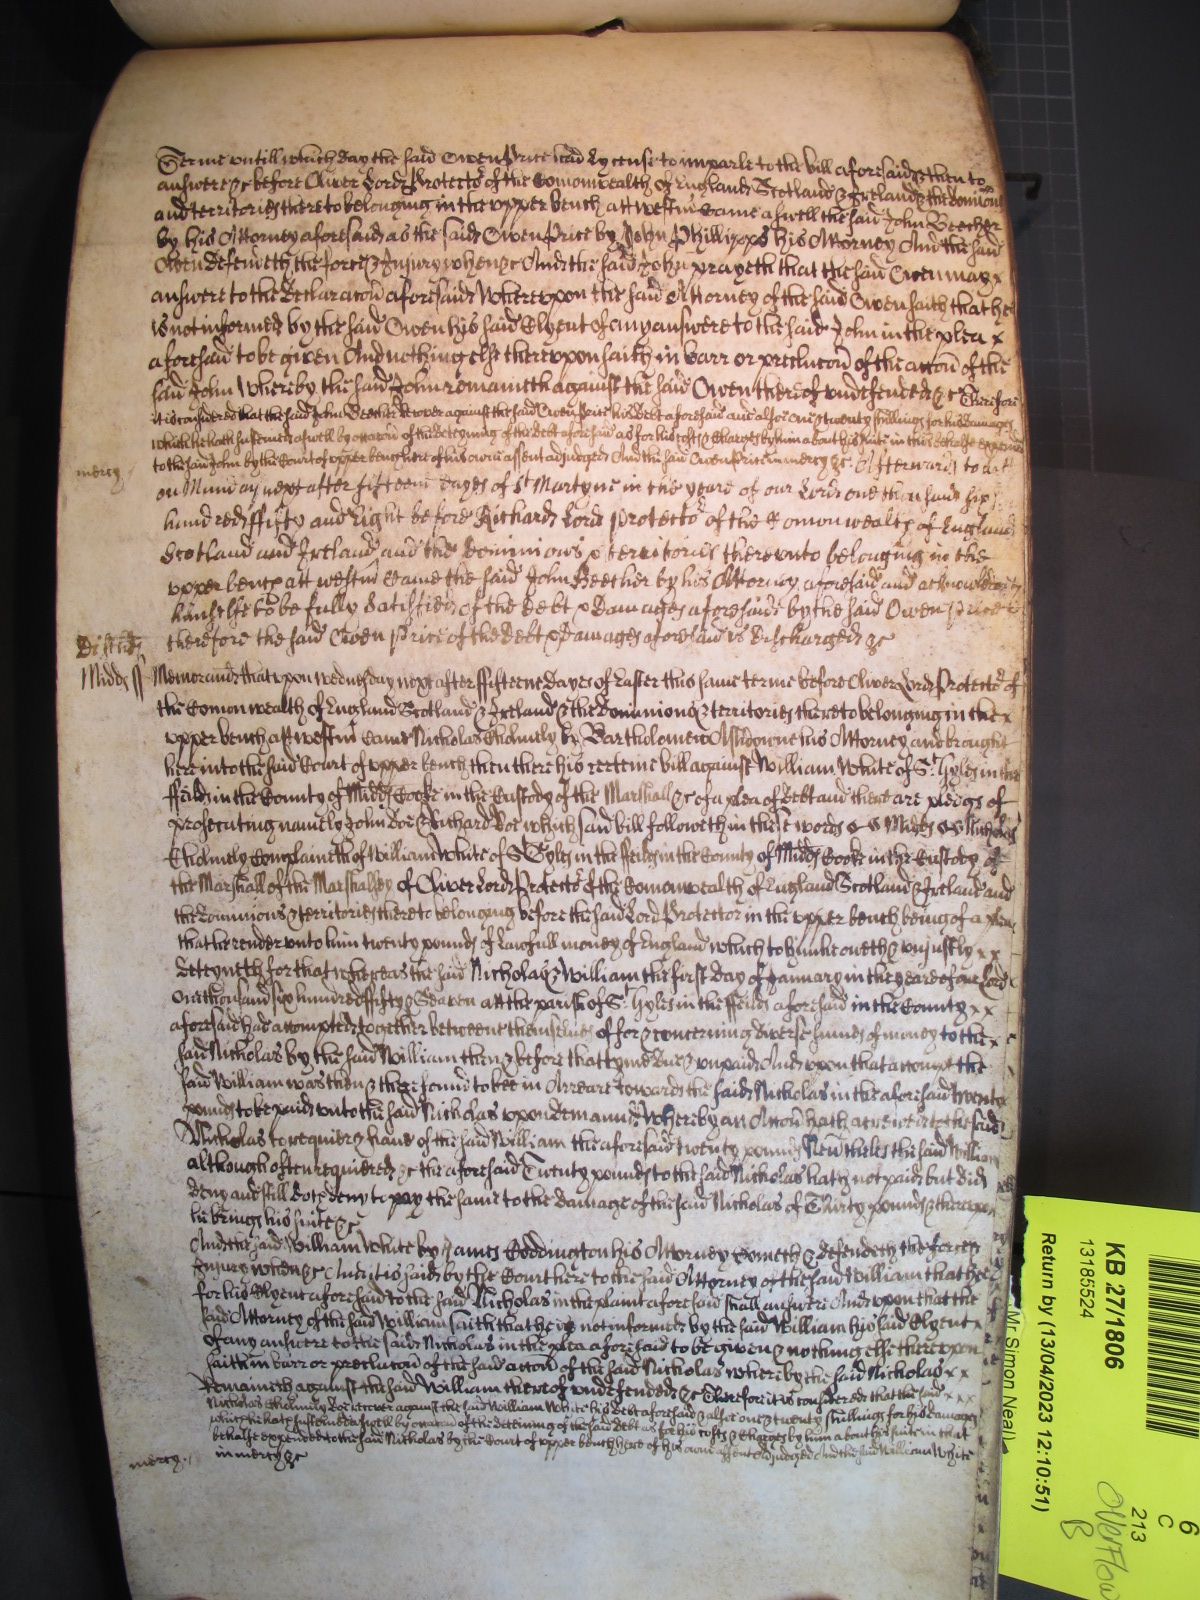 Terme untill which day the said Owen Price had Lycense to imparle to the bill aforesaid & then to
answere &c before Oliver Lord Protector of the Comonwealth of England Scotland & Ireland & the dominions
and territories thereto belonging in the upper bench att westm Came aswell the said John Beecher
by his Attorney aforesaid as the said Owen Price by John Phillipps his Attorney And the said
Owen defendeth the force & Injury when &c And the said John prayeth that the said Owen may x
answere to the declaracon aforesaid Whereupon the said Attorney of the said Owen saith that he
is not informed by the said Owen his said Clyent of any answere to the said John in the plea x
aforesaid to be given And nothing else thereupon saith in barr or preclucon of the accon of the
said John Whereby the said John remaineth against the said Owen thereof undefended &c Therefore
it is considered that the said John Beecher Recover against the said Owen Price his debt aforesaid and also one & twenty shillings for his damages
which he hath susteined aswell by occacon of the deteyning of the debt aforesaid as for his costs & Charges by him about his suite in this behalfe expended
to the said John by the Court of upper bench here of his owne assent adjudged And the said Owen Price in mercy &c Afterwards to witt
mercy
on Munday next after fifteene dayes of St Martyne in the yeare of our Lord one thousand six
hundred fifty and Eight before Richard Lord Protector of the Comonwealth of England
Scotland and Ireland and the dominions & territories thereunto belonging in the
upper bench att westm Came the said John Beecher by his Attorney aforesaid and acknowledgeth
himselfe to be fully satisfied of the debt & damages aforesaid by the said Owen Price
therefore the said Owen Price of the debt & damages aforesaid is discharged &c
Midds ss Memorand that upon wednesday next after fifteene dayes of Easter this same terme before Oliver Lord Protector of
the Comonwealth of England Scotland & Ireland & the dominions & territories thereto belonging in the x
upper bench att westm Came Nicholas Cholmely by Bartholomew his Attorney and brought
here into the said Court of upper bench then there his certeine bill against William White of St Gyles in the
ffeilds in the County of Midds Cooke in the Custody of the Marshall &c of a plea of debt and there are pledges of
prosecuting namely John Doe & Richard Roe which said bill followeth in these words ss Midds ss Nicholas
Cholmely Complaineth of William White of St Gyles in the ffeilds in the County of Midds Cooke in the Custody of
the Marshall of the Marshalsey of Oliver Lord Protector of the Comonwealth of England Scotland & Ireland and
the dominions & territories thereto belonging before the said Lord Protector in the upper bench being of a plea
that he render unto him twenty pounds of lawfull money of England which to him he oweth & unjustly x x
deteyneth for that whereas the said Nicholas & William the first day of January in the yeare of our Lord
One thousand six hundred fifty & Seaven att the parish of St Gyles in the ffeilds aforesaid in the County x x
aforesaid had accompted together betweene themselves of for & concerning diverse sumes of money to the x
said Nicholas by the said William then & before that tyme due & unpaid And upon that accompt the
said William was then & there found to bee in Arreare towards the said Nicholas in the aforesaid twenty
pounds to be paid unto the said Nicholas upon demand Whereby an Accon hath accrewed to the said
Nicholas to require & have of the said William the aforesaid twenty pounds Nevertheles the said William
although often required &c the aforesaid Twenty pounds to the said Nicholas hath not paid but did
deny and still doth deny to pay the same to the damage of the said Nicholas of Thirty pounds & thereupon
he brings his suite &c
And the said William White by James Boddington his Attorney cometh & defendeth the force &
Injury when &c And it is said by the Court here to the said Attorney of the said William that hee
for his Clyent aforesaid to the said Nicholas in the plaint aforesaid shall answere And upon that the
said Attorney of the said William saith that he is not informed by the said William his said Clyent x
of any answere to the said Nicholas in the plea aforesaid to be given & nothing else thereupon
saith in barr or preclucon of the said accon of the said Nicholas whereby the said Nicholas x x
Remaineth against the said William thereof undefended &c Therefore it is considered that the said x x x
Nicholas Cholmely doe recover against the said William White his debt aforesaid & also one & twenty shillings for his damages
which he hath susteined aswell by occacon of the deteining of the said debt as for his costs & Charges by him about his suite in that
behalfe expended to the said Nicholas by the Court of upper bench here of his owne assent adjudged And the said William White
mercy in mercy &c
KB 27/1806
13185524
Return by (13/04/2023 12:10:51)
Mr Simon Neal
6
C
213
Overflow
B